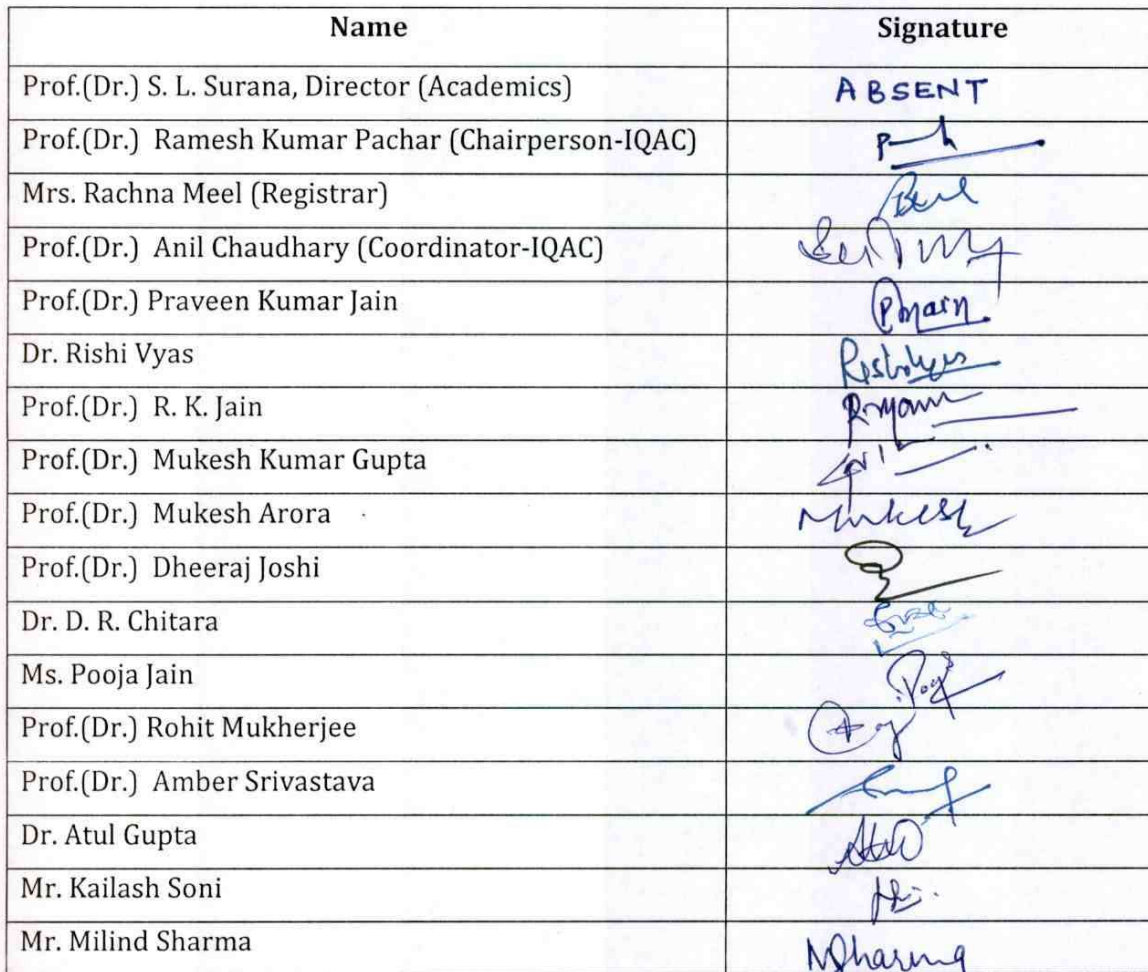 Name Signature
Prof.(Dr.) S. L. Surana, Director (Academics) ABSENT
Prof.(Dr.) Ramesh Kumar Pachar (Chairperson-IQAC)
Mrs. Rachna Meel (Registrar)
Prof.(Dr.) Anil Chaudhary (Coordinator-IQAC)
Prof.(Dr.) Praveen Kumar Jain
Dr. Rishi Vyas
Prof.(Dr.) R. K. Jain
Prof.(Dr.) Mukesh Kumar Gupta
Prof.(Dr.) Mukesh Arora Mukesh
Prof.(Dr.) Dheeraj Joshi
Dr. D. R. Chitara
Ms. Pooja Jain
Prof.(Dr.) Rohit Mukherjee
Prof.(Dr.) Amber Srivastava
Dr. Atul Gupta
Mr. Kailash Soni
Mr. Milind Sharma MSharma